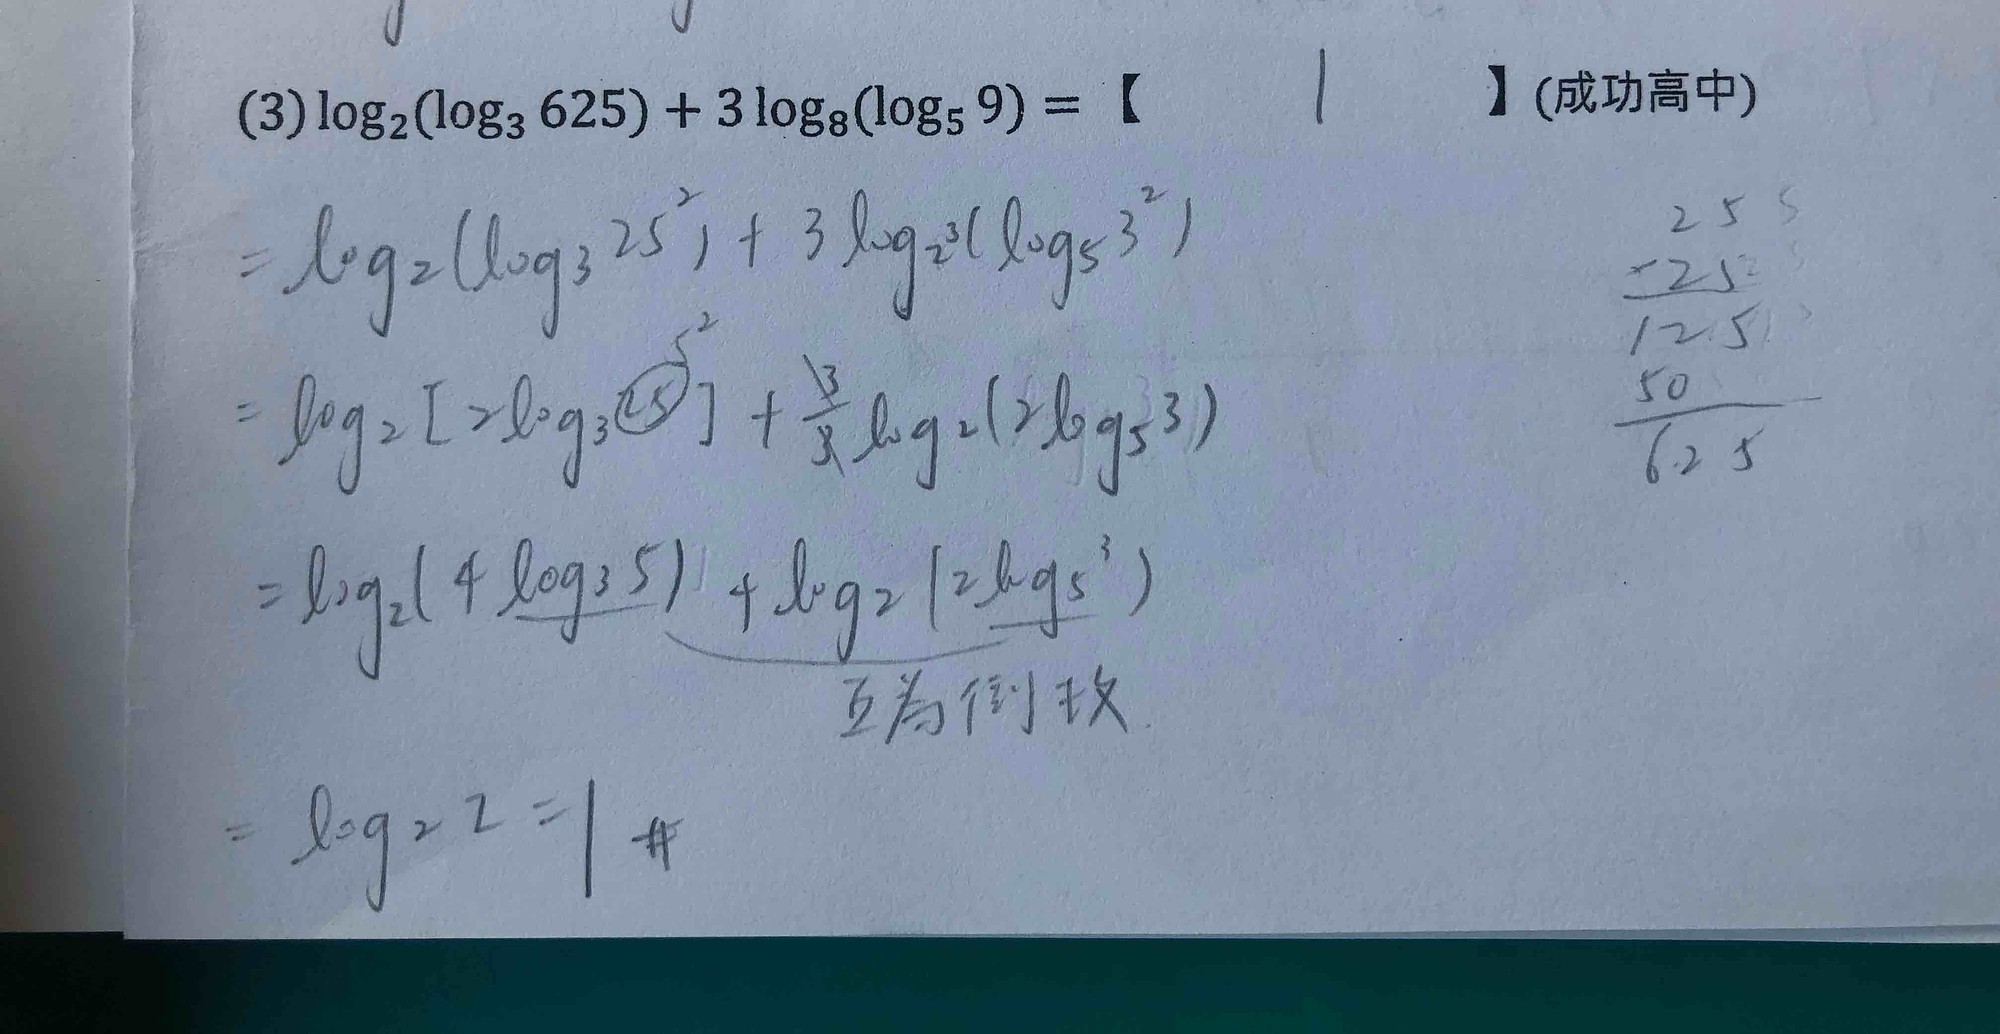 (3) log₂(log₃ 625) + 3 log₈(log₅ 9) = 【 1 】(成功高中)
= log₂(log₃ 25²) + 3 log₂³(log₅ 3²)
= log₂[2log₃ 25] + 3/3 log₂(2log₅ 3)
5²
= log₂(4 log₃ 5) + log₂(2log₅ 3)
互為倒数
= log₂ 2 = 1 #
25
×25
125
50
625